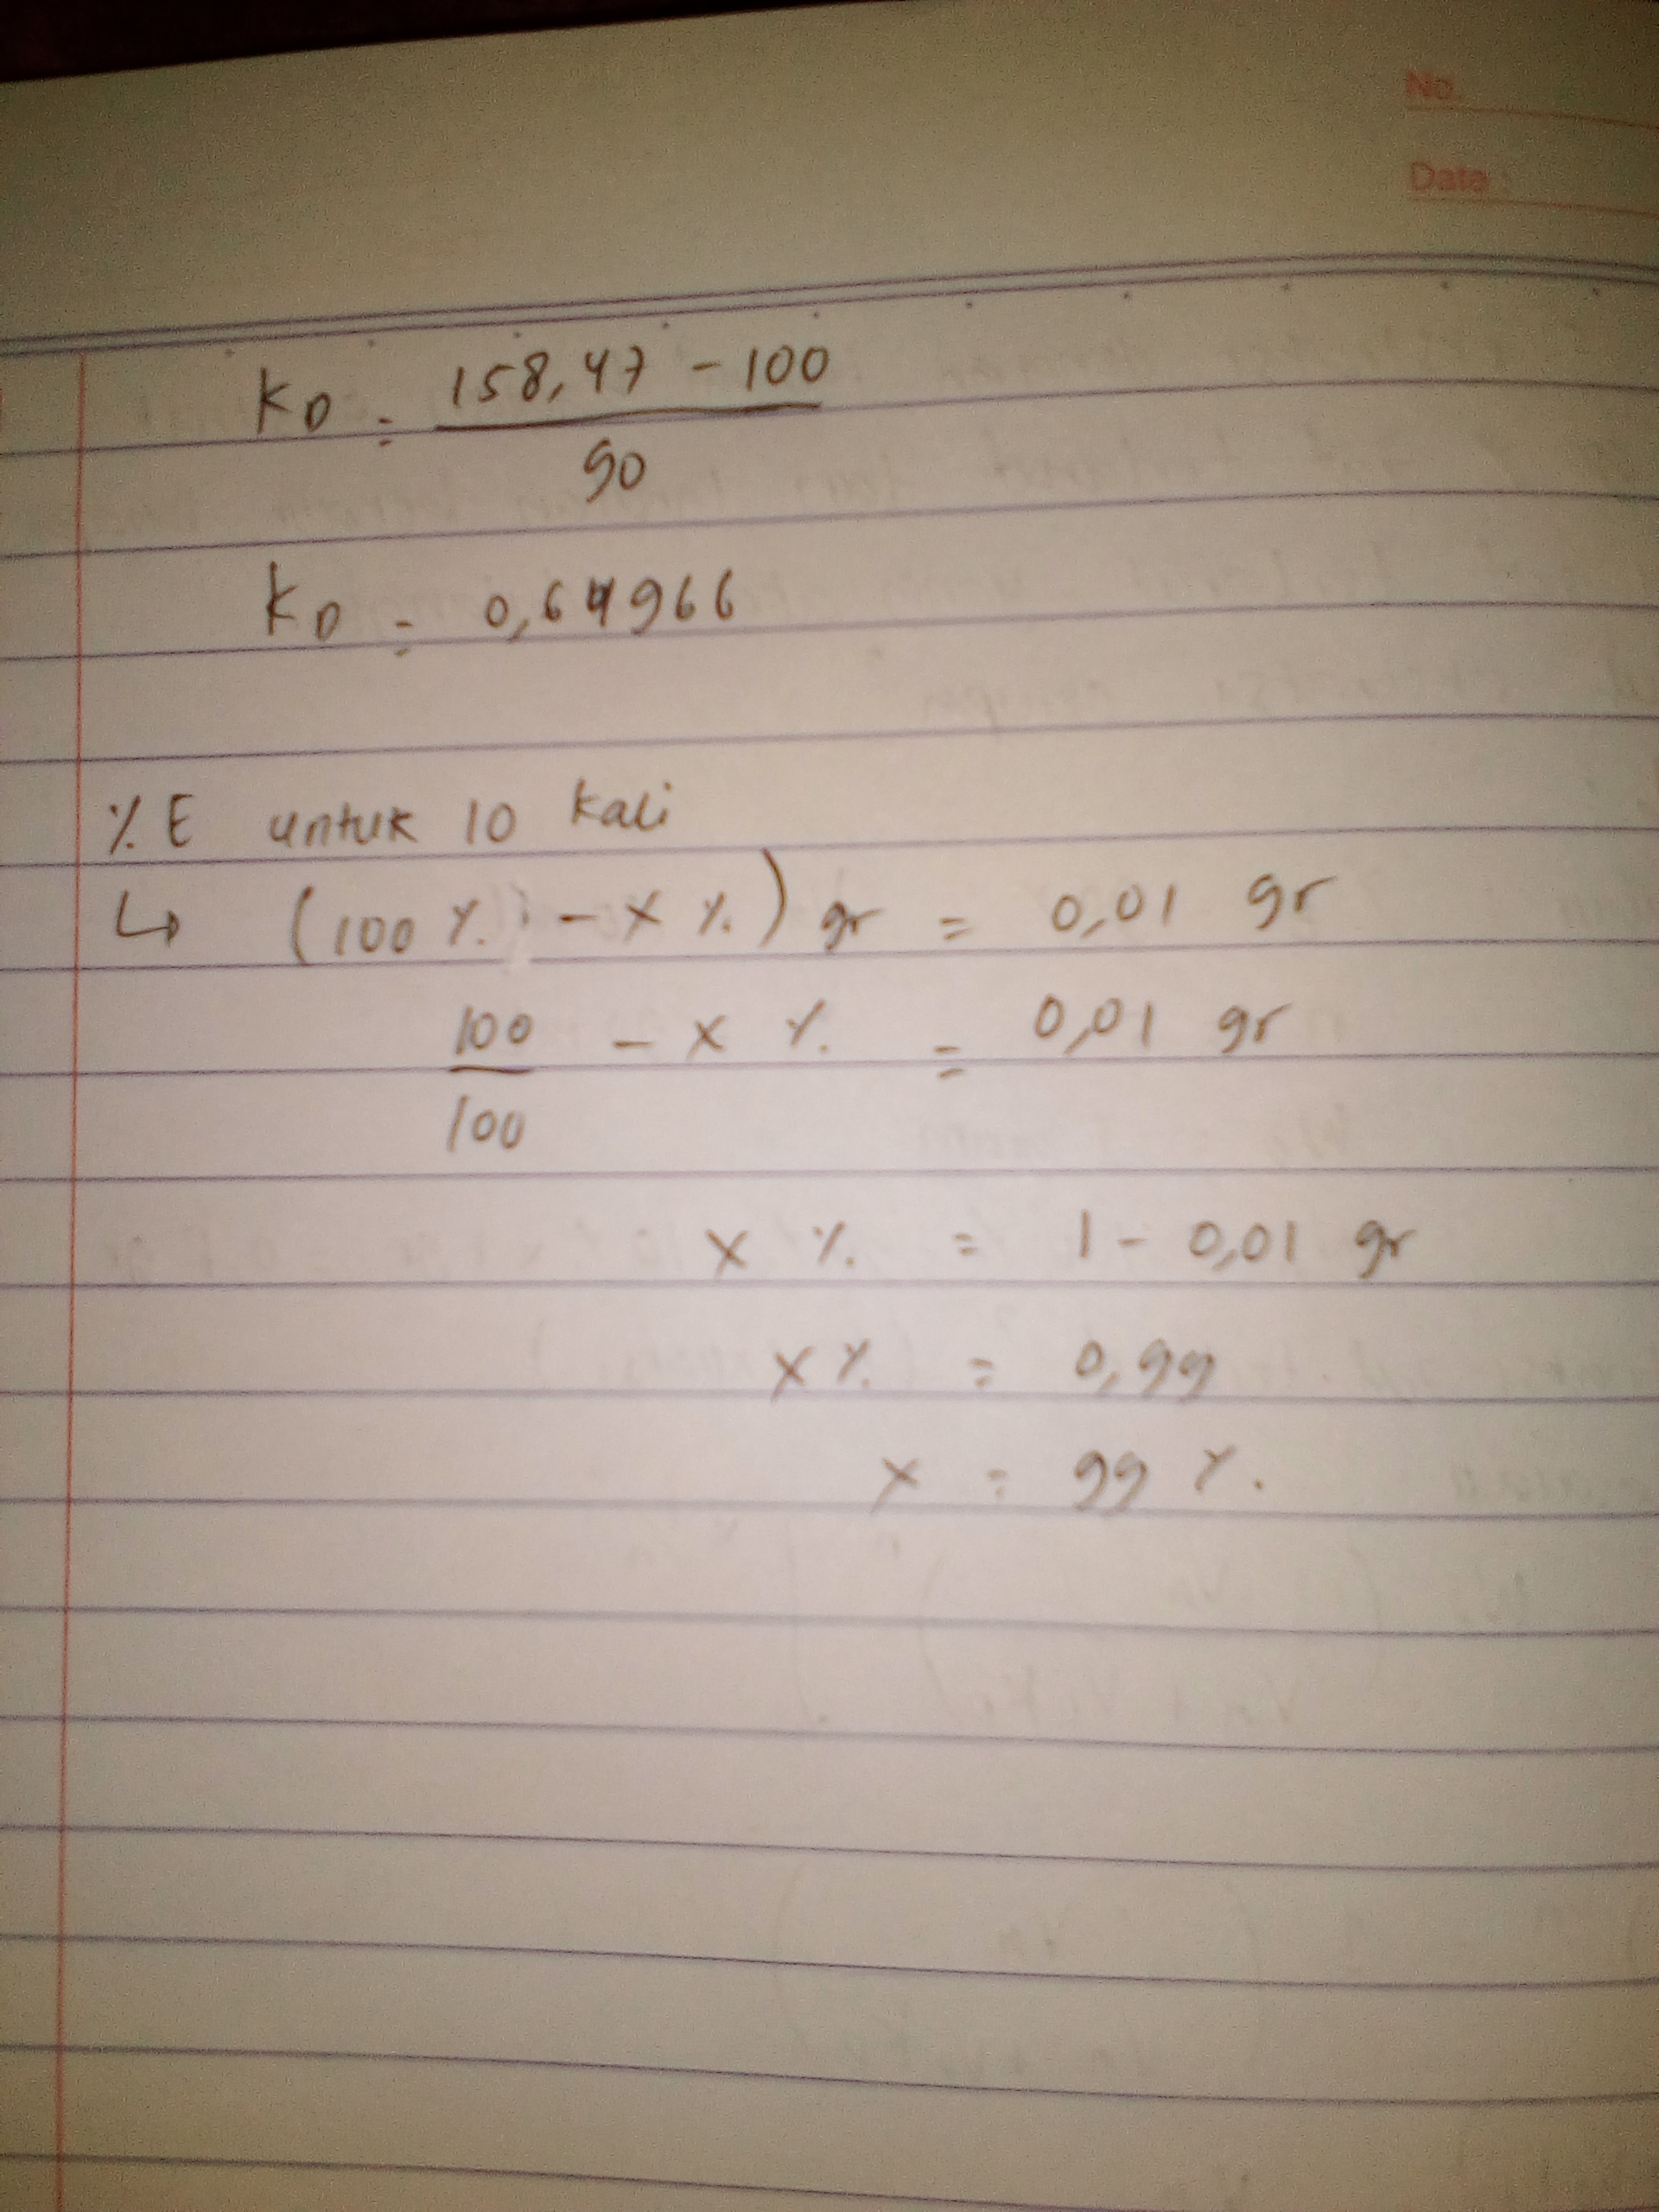 No.
Date :
KD = 158,47 - 100
90
KD = 0,64966
% E untuk 10 kali
↳ (100 % - x %) gr = 0,01 gr
100 - x % = 0,01 gr
100
x % = 1 - 0,01 gr
x % = 0,99
x = 99 %.